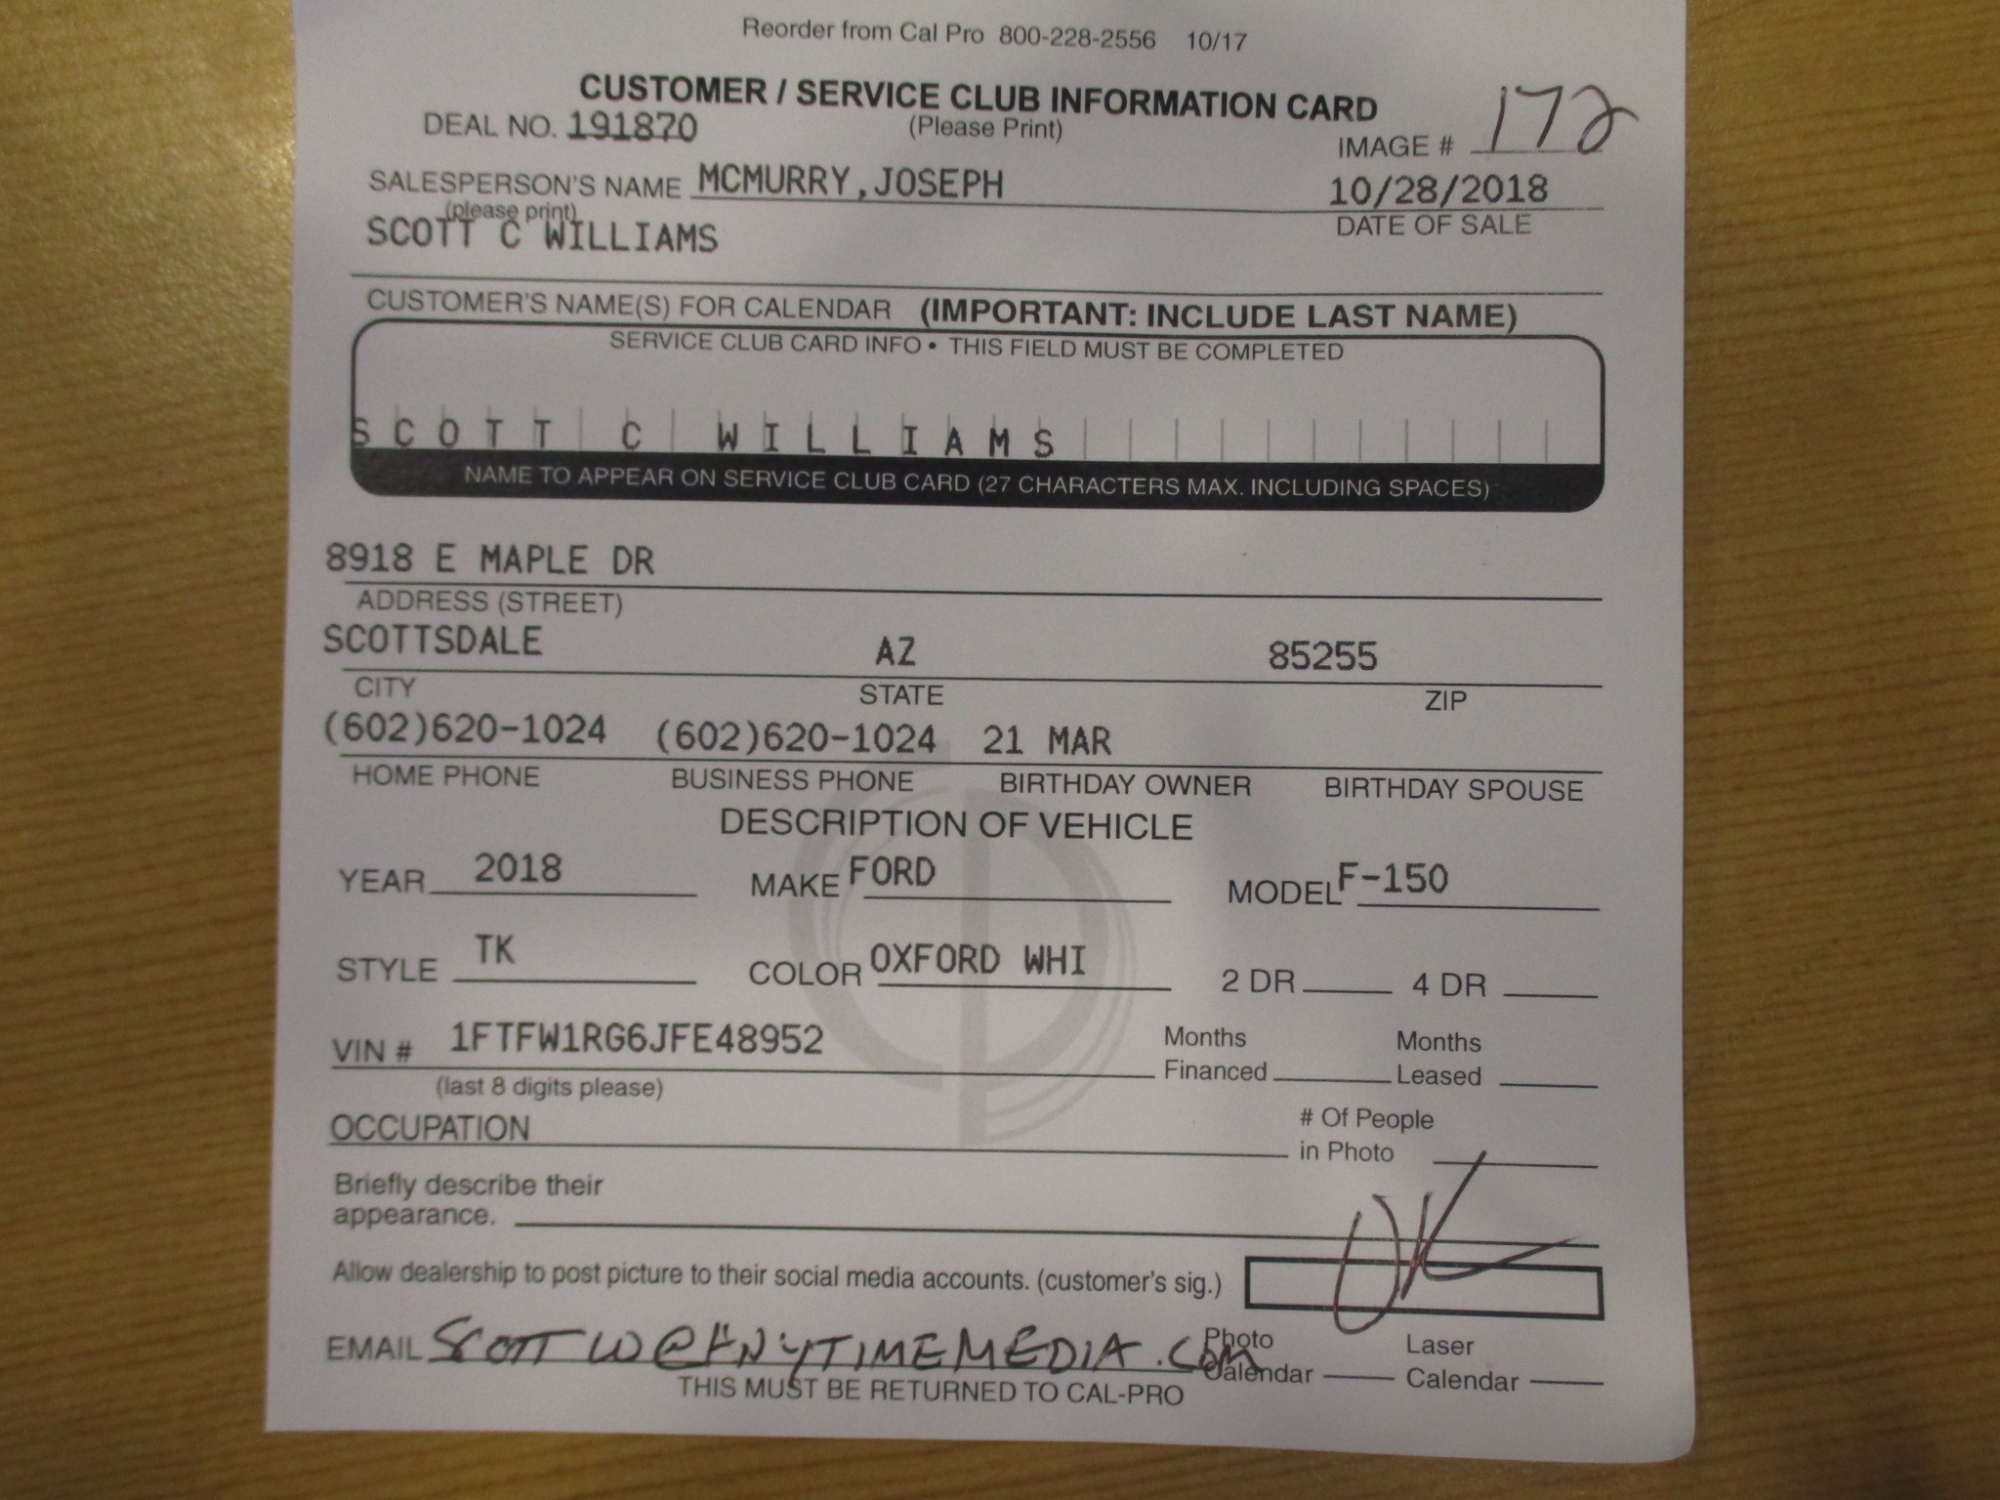 Reorder from Cal Pro 800-228-2556 10/17
CUSTOMER / SERVICE CLUB INFORMATION CARD
DEAL NO. 191870 (Please Print) IMAGE # 172
SALESPERSON'S NAME MCMURRY,JOSEPH 10/28/2018
(please print) DATE OF SALE
SCOTT C WILLIAMS
CUSTOMER'S NAME(S) FOR CALENDAR (IMPORTANT: INCLUDE LAST NAME)
SERVICE CLUB CARD INFO • THIS FIELD MUST BE COMPLETED
SCOTT C WILLIAMS
NAME TO APPEAR ON SERVICE CLUB CARD (27 CHARACTERS MAX. INCLUDING SPACES)
8918 E MAPLE DR
ADDRESS (STREET)
SCOTTSDALE AZ 85255
CITY STATE ZIP
(602)620-1024 (602)620-1024 21 MAR
HOME PHONE BUSINESS PHONE BIRTHDAY OWNER BIRTHDAY SPOUSE
DESCRIPTION OF VEHICLE
YEAR 2018 MAKE FORD MODEL F-150
STYLE TK COLOR OXFORD WHI 2 DR 4 DR
VIN # 1FTFW1RG6JFE48952 Months Financed Months Leased
(last 8 digits please)
OCCUPATION # Of People in Photo
Briefly describe their
appearance.
OK
Allow dealership to post picture to their social media accounts. (customer's sig.)
EMAIL SCOTTW@ANYTIMEMEDIA.COM Photo Calendar Laser Calendar
THIS MUST BE RETURNED TO CAL-PRO